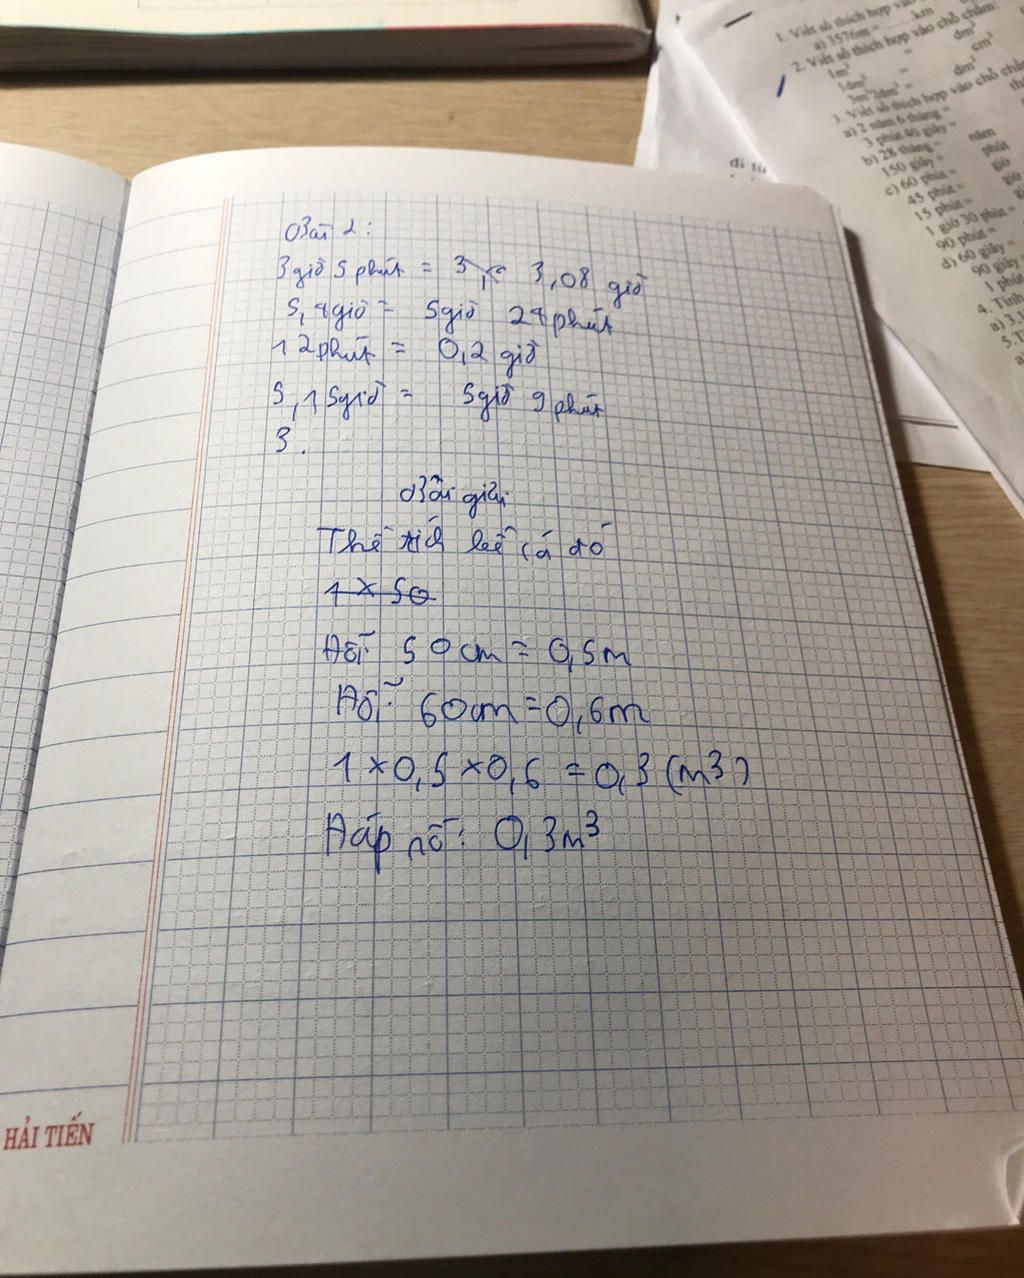 Bài 2:
3 giờ 5 phút = 3, 3,08 giờ
5,4 giờ = 5 giờ 24 phút
12 phút = 0,2 giờ
5,15 giờ = 5 giờ 9 phút
3.
Bài giải
Thể tích bể cá đó
1 x 50
Đổi 50cm = 0,5m
Đổi 60cm = 0,6m
1 x 0,5 x 0,6 = 0,3 (m3)
Đáp số: 0,3m3
HẢI TIẾN
1. Viết số thích hợp vào
a) 3576m = ......km
2. Viết số thích hợp vào chỗ chấm:
1m³ = dm³
1dm³ = cm³
3m³ 2dm³ = dm³
3. Viết số thích hợp vào chỗ chấm
a) 2 năm 6 tháng =
3 phút 40 giây =
b) 28 tháng = năm
150 giây = phút
c) 60 phút = giờ
45 phút = giờ
15 phút =
1 giờ 30 phút =
90 phút =
d) 60 giây =
90 giây =
1 phút
4. Tính
a) 3,1
5. T
a
đi từ